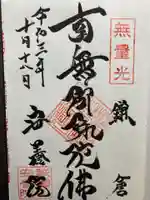 無量光
鎌倉
南無阿弥陀佛
安養院
令和 年
十月十 日